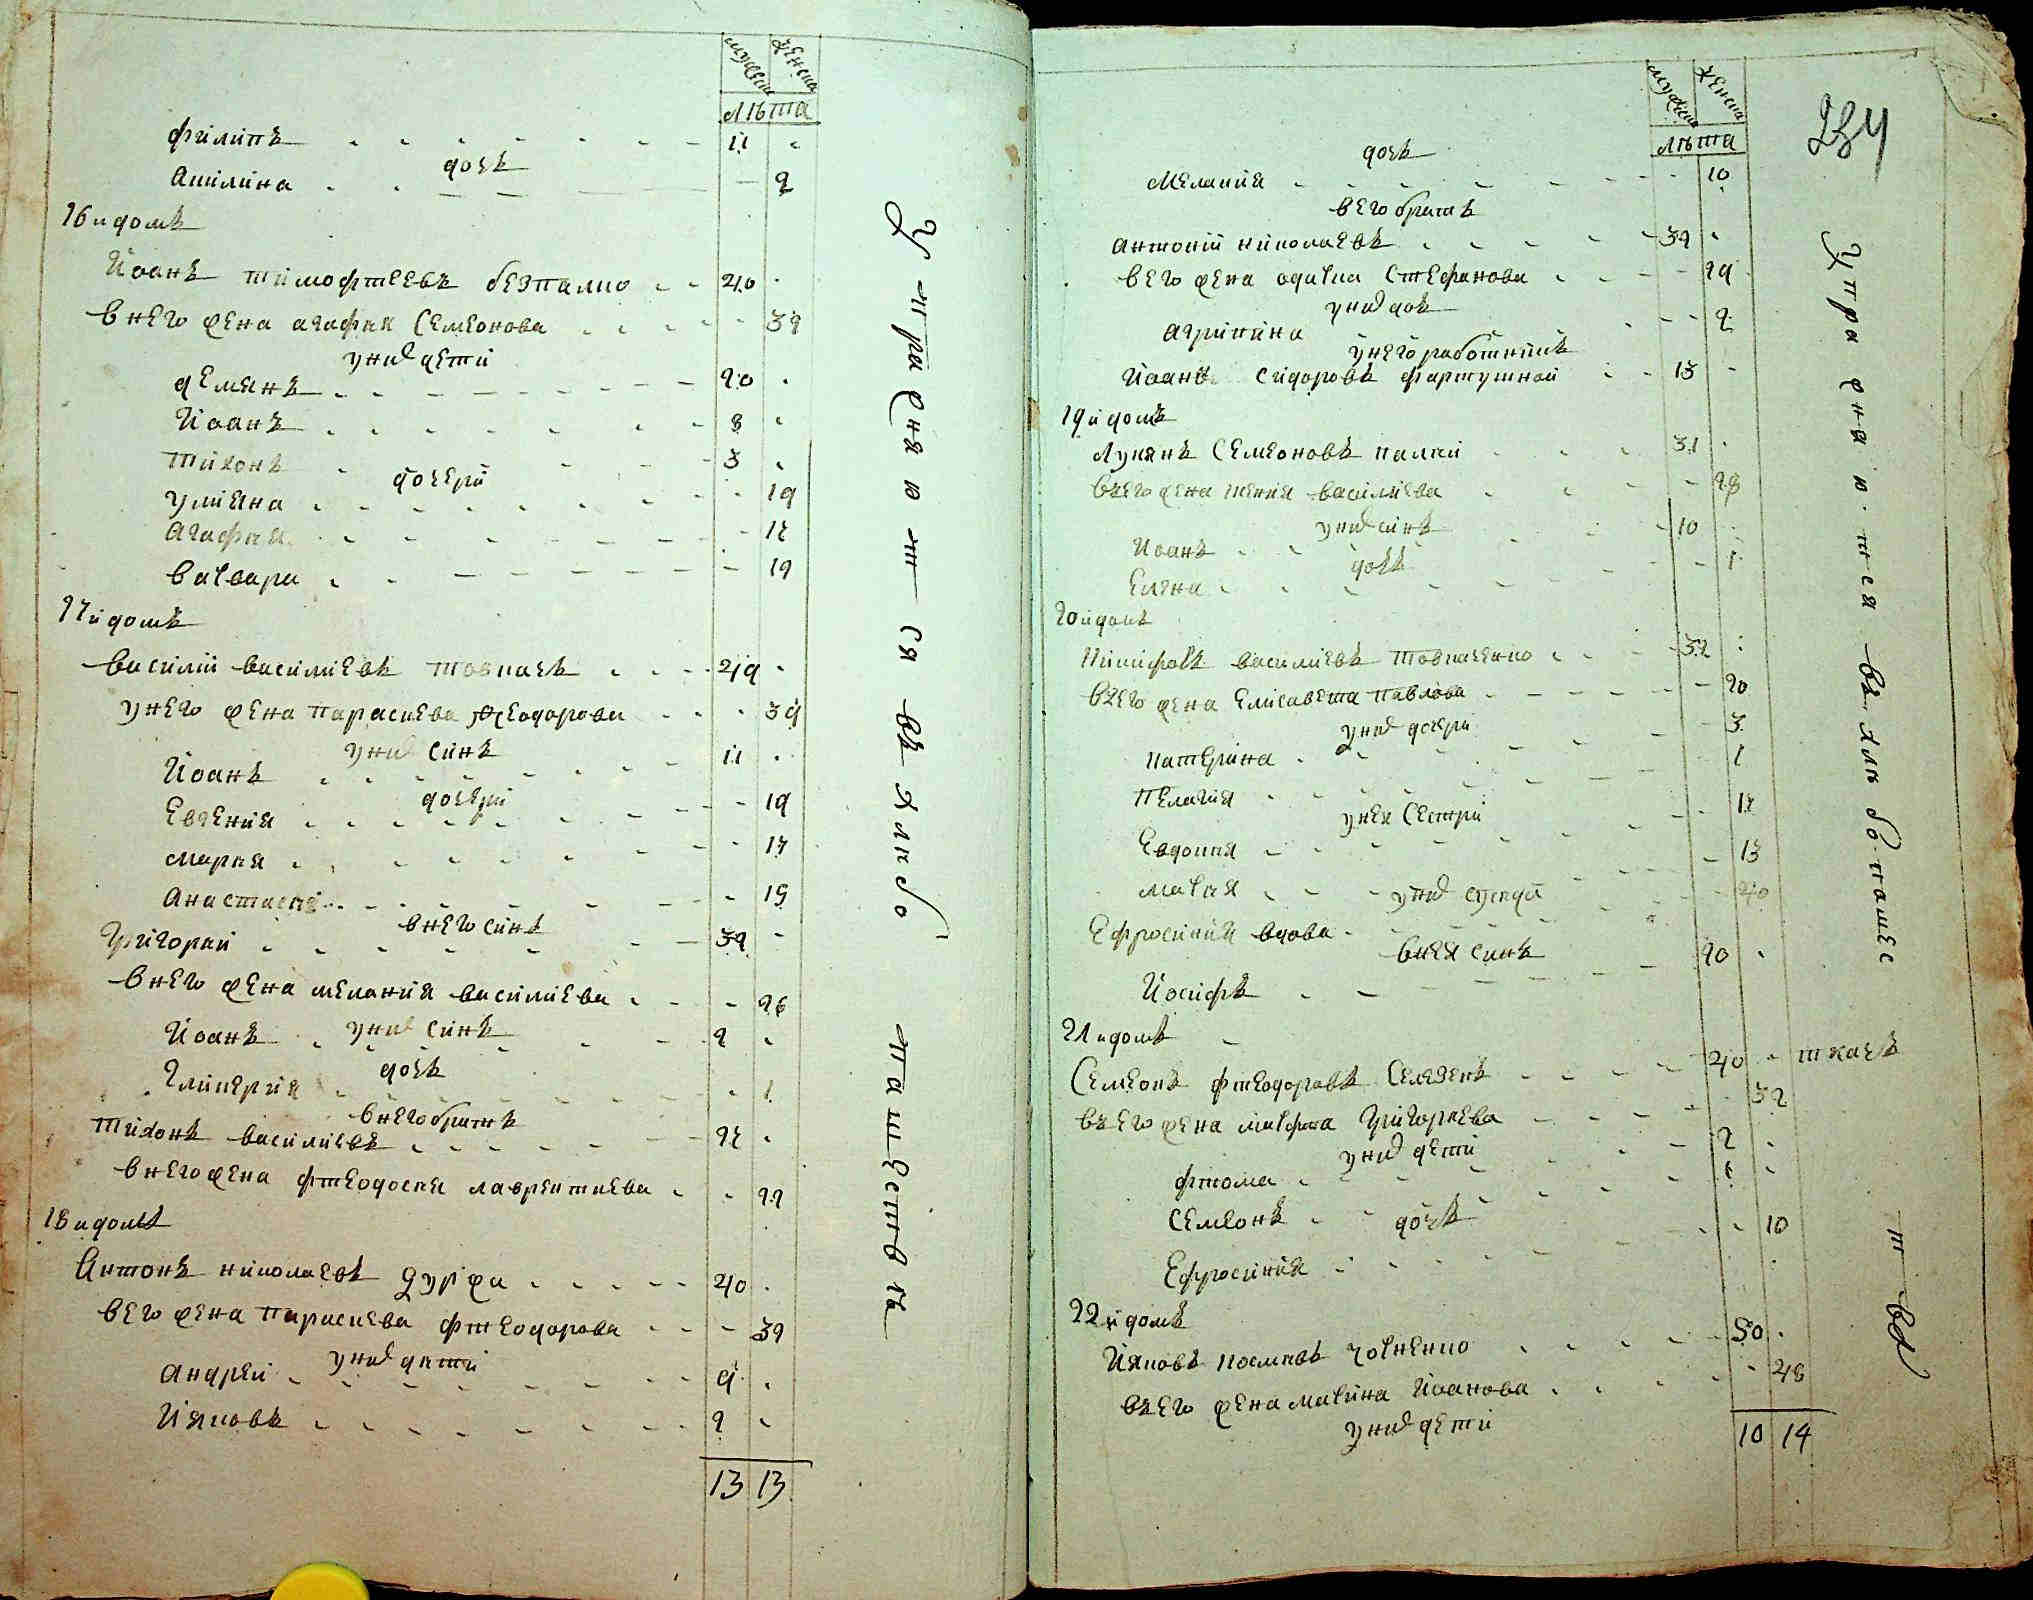 мужеска женска
лѣта
филипъ 11
дочъ
акилина 2
16 й домъ
Иоанъ тимофтеевъ безпалко 40
в него жена агафия Семеонова 32
у них дети
демянъ 20
Иоанъ 8
тихонъ 3
дочери
улияна 19
агафия 12
варвара 19
17 й домъ
василий василиевъ товпачъ 49
у него жена параскева фтеодорова 39
у них синъ
Иоанъ 11
дочери
Евгения 19
мария 17
анастасия 15
в него синъ
Григорий 32
в него жена мелания василиева 26
у них синъ
Иоанъ 2
дочъ
Гликерия 1
в него братъ
тихонъ василиевъ 22
в него жена фтеодосия лаврентиева 22
18 й домъ
Антонъ николаевъ дуржа 40
в его жена параскева фтеодорова 39
у них дети
андрей 9
Ияковъ 2
13 13
Упражняются въ хлибопашествѣ
мужеска женска
лѣта
234
дочъ
мелания 10
в его братъ
антоний николаевъ 32
в его жена одарка стефанова 29
у них доч
агрипина 2
у него работникъ
Иоанъ сидоровъ фартушной 13
19 й домъ
Лукянъ Семеоновъ палий 31
въ его жена ксения василиева 28
у них синъ
Иоанъ 10
дочъ
Елена 1
20 й домъ
Никифоръ василиевъ товпаченко 32
въ его жена Елисавета павлова 20
у них дочери
катерина 3
пелагия 1
у нея сестри
Евдокия 12
мария 13
у них суседи
Ефросиния вдова 40
в нея синъ
Иосифъ 20
21 й домъ
Семеонъ фтеодоровъ Селезенъ 40 ткачъ
въ его жена марфа григориева 32
у них дети
фтома 2
Семеонъ
дочъ
Ефросиния 10
22 й домъ
Ияковъ космовъ човненко 50
въ его жена марина Иоанова 48
у них дети
10 14
Упражнаются въ хлѣбопашес
твѣ